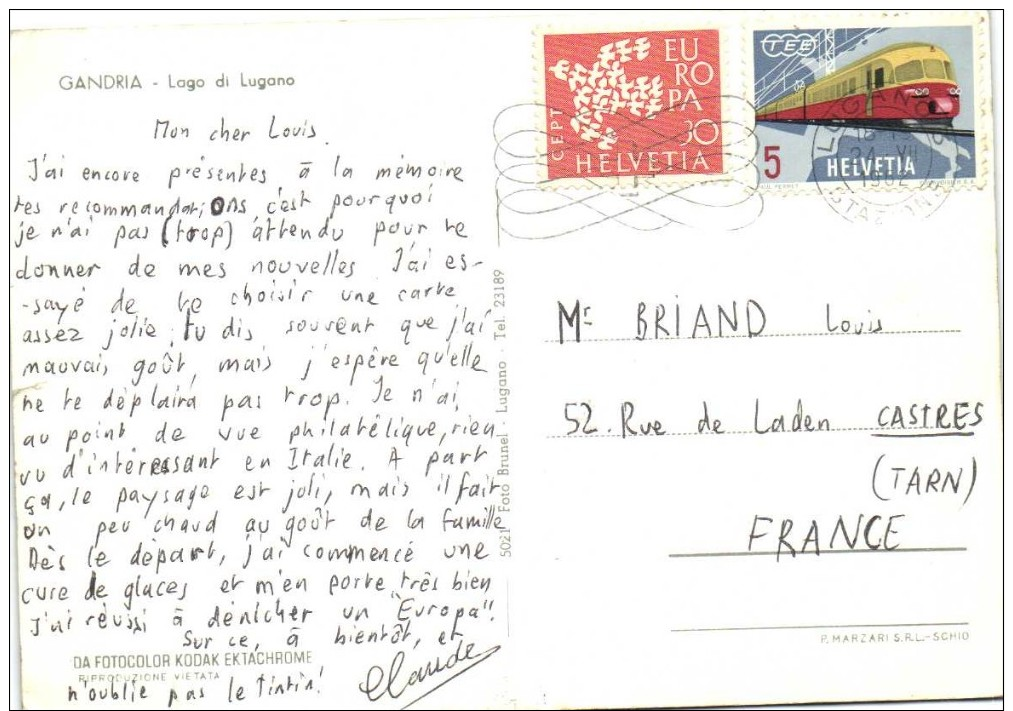 GANDRIA - Lago di Lugano
Mon cher Louis.
J'ai encore présentes à la mémoire
tes recommandations, c'est pourquoi
je n'ai pas (trop) attendu pour te
donner de mes nouvelles. J'ai es-
-sayé de te choisir une carte
assez jolie; tu dis souvent que j'ai
mauvais goût, mais j'espère qu'elle
ne te déplaira pas trop. Je n'ai,
au point de vue philatélique, rien
vu d'intéressant en Italie. A part
ça, le paysage est joli, mais il fait
un peu chaud au goût de la famille
Dès le départ, j'ai commencé une
cure de glaces et m'en porte très bien
J'ai réussi à dénicher un "Europa".
Sur ce, à bientôt, et
n'oublie pas le Tintin!
Claude
DA FOTOCOLOR KODAK EKTACHROME
RIPRODUZIONE VIETATA
5021 Foto Brunel - Lugano - Tel. 23189
EUROPA
CEPT
30
HELVETIA
TEE
5
HELVETIA
LUGANO
24. VII
1962
STAZIONE
Mr BRIAND Louis
52. Rue de Laden CASTRES
(TARN)
FRANCE
P. MARZARI S.R.L.-SCHIO